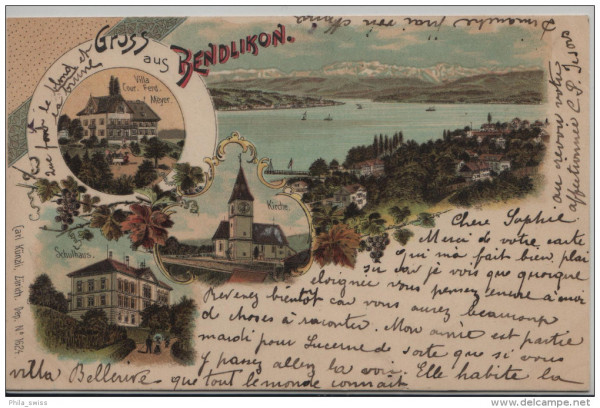 Gruss
aus
BENDLIKON.
Villa
Conr. Ferd.
Meyer.
Kirche.
Schulhaus.
Carl Künzli, Zürich. Dep. No 1624.
Chère Sophie
Merci de votre carte
qui m'a fait bien plai
sir car je vois que quoique
éloignée vous pensez encore à moi
Revenez bientôt car vous aurez beaucoup
de choses à raconter. Mon amie est partie
mardi pour Lucerne de sorte que si vous
y passez allez la voir. Elle habite la
villa Bellerive que tout le monde connait.
Dimanche
j'irai
au revoir votre
affectionnée C. P.
que
le blond et
la brune
delcampe.net
Phila_swiss